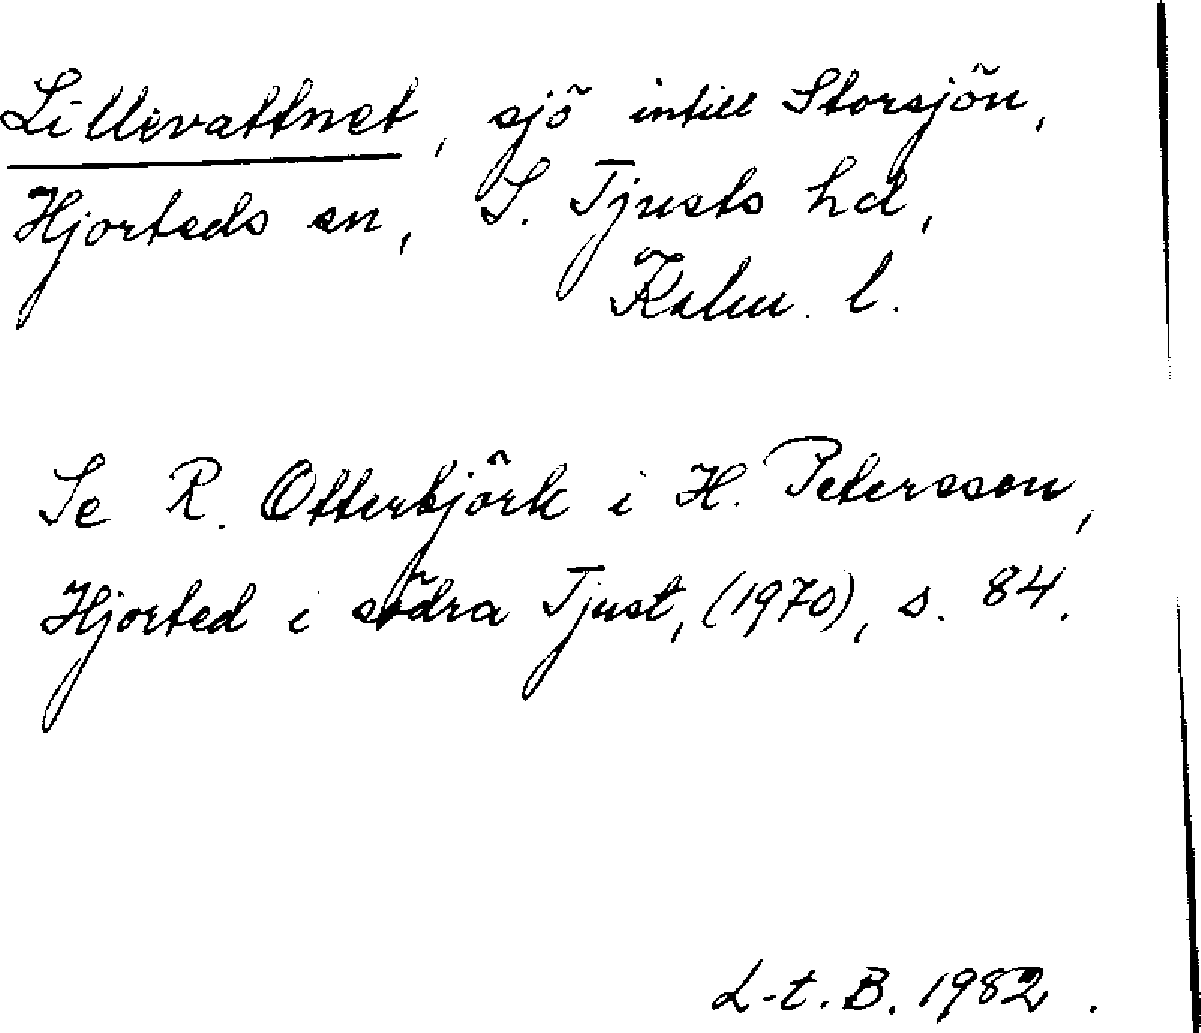 Lillevattnet, sjö intill Storsjön,
Hjorteds sn, S. Tjusts hd,
Kalm. l.
Se R. Otterbjörk i H. Petersson,
Hjorted i södra Tjust, (1970), s. 84.
L-t. B. 1982.